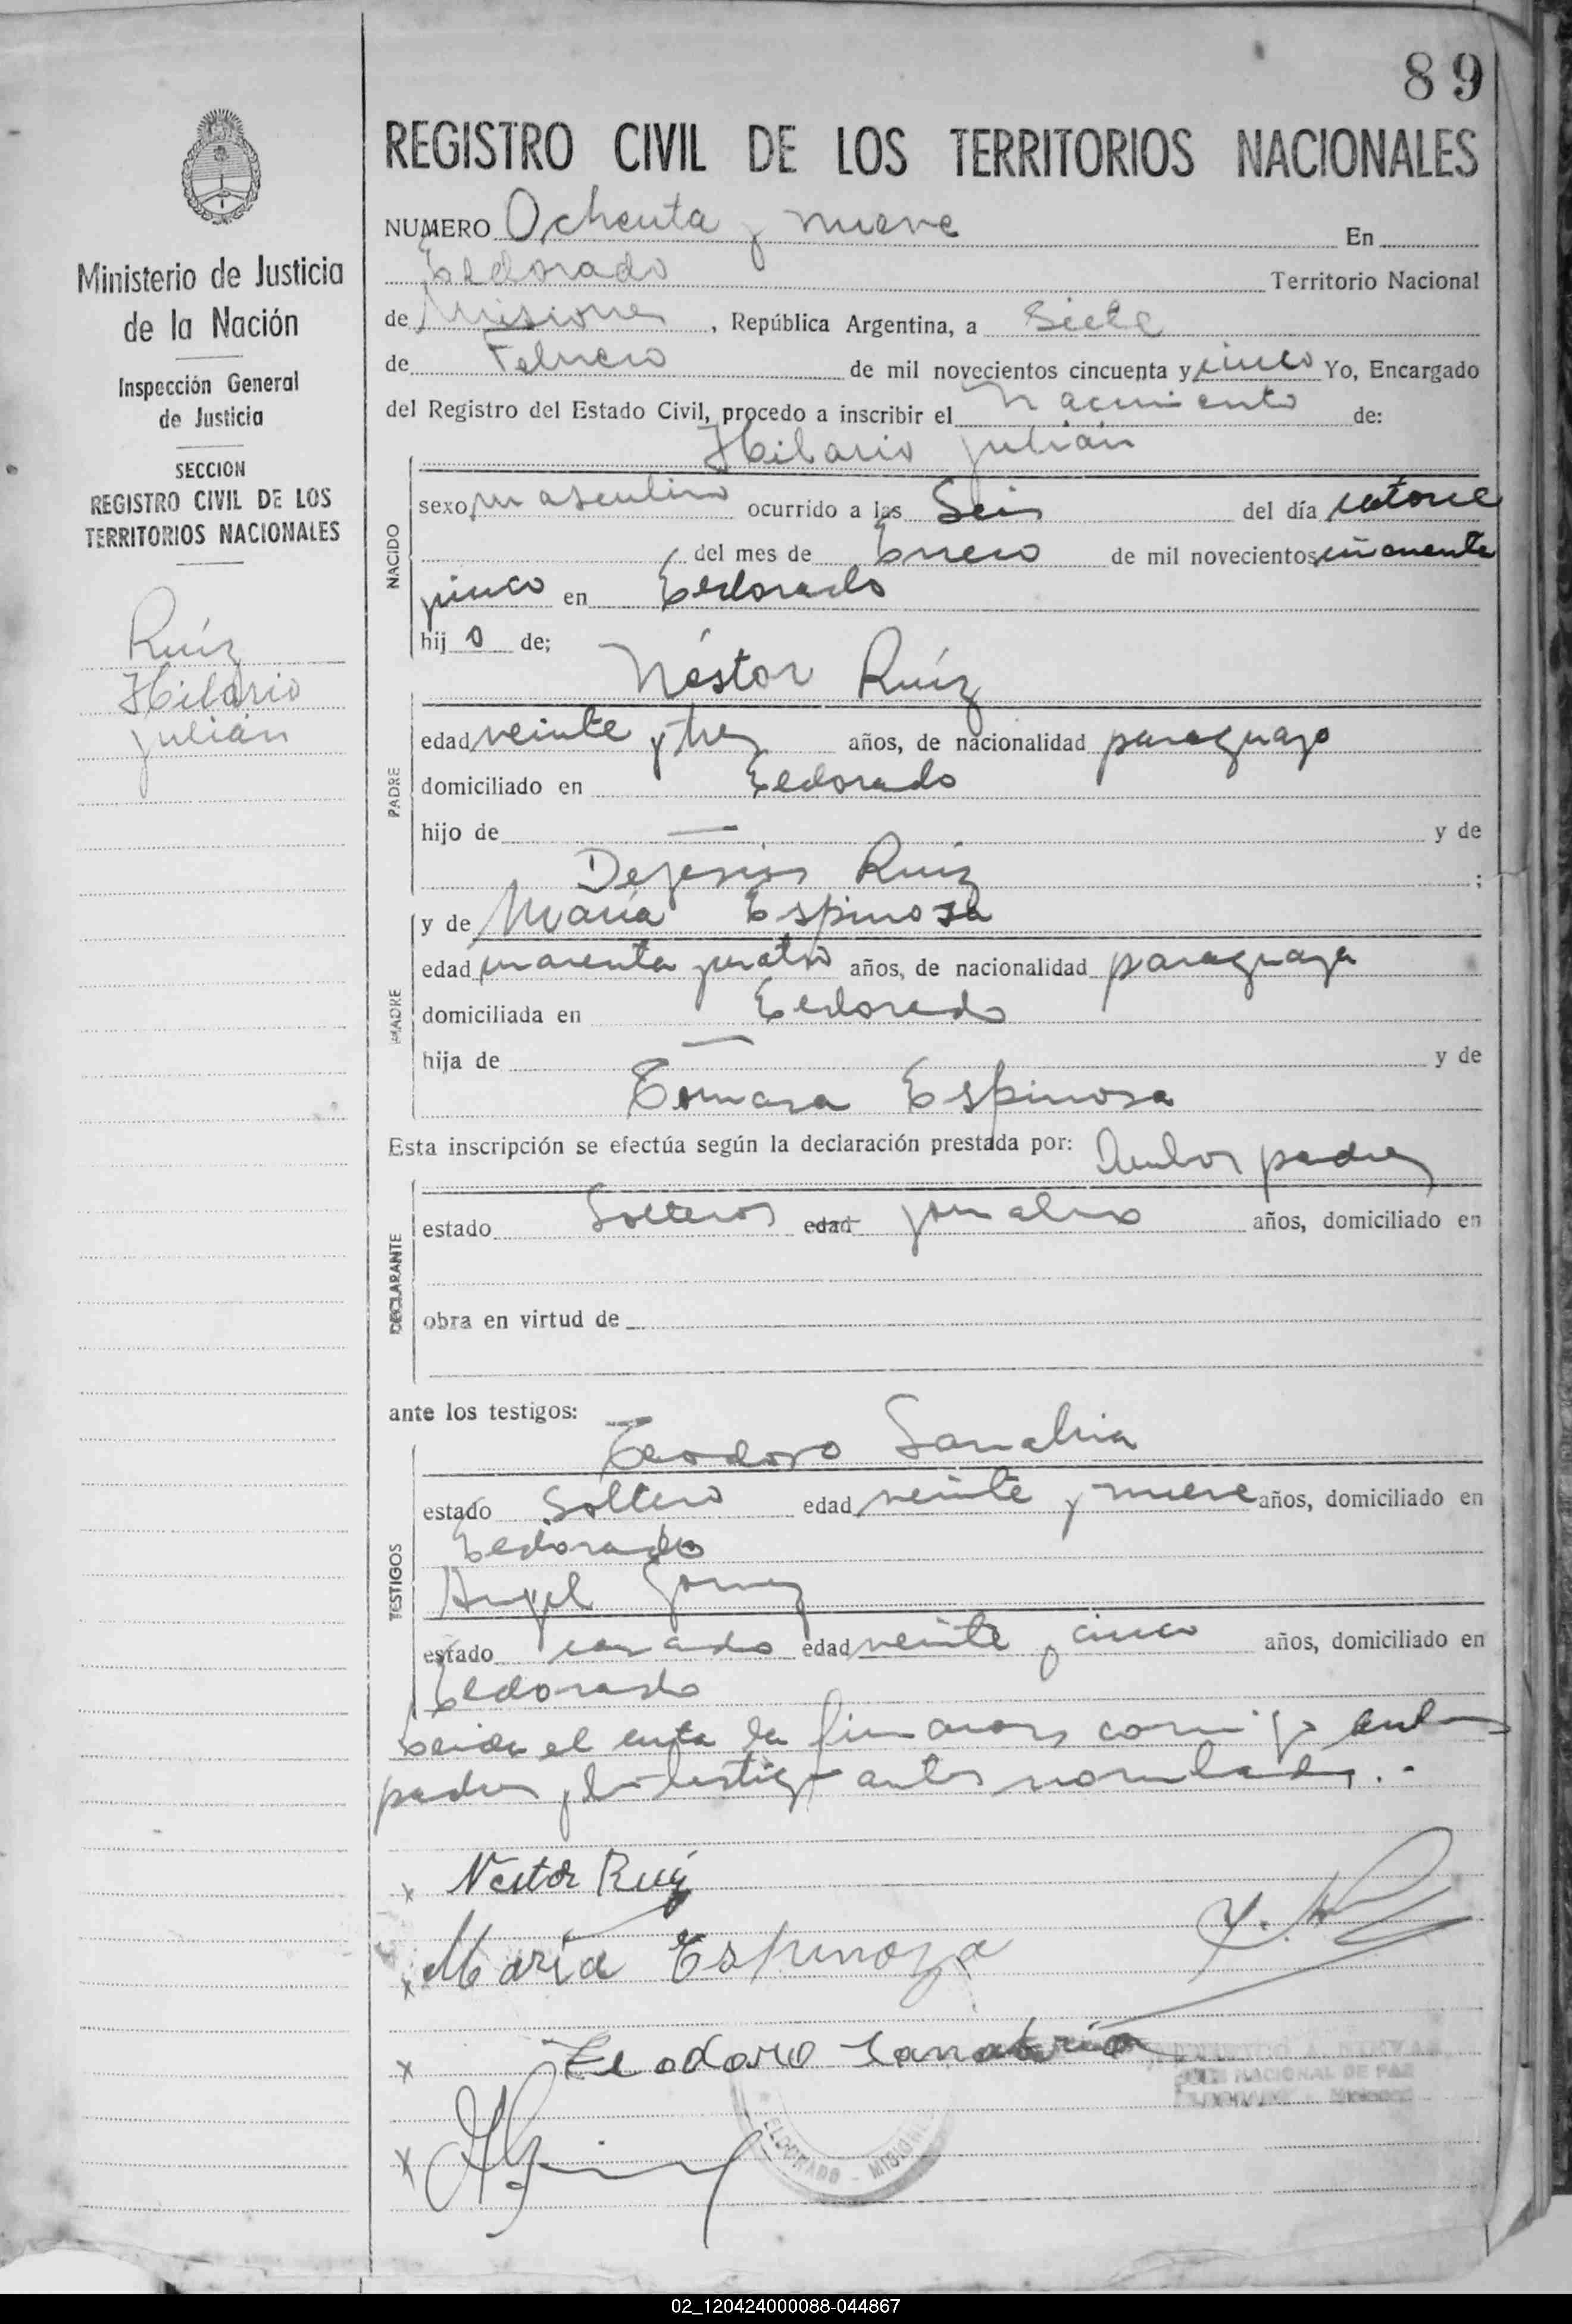 89
REGISTRO CIVIL DE LOS TERRITORIOS NACIONALES
Ministerio de Justicia
de la Nación
Inspección General
de Justicia
SECCION
REGISTRO CIVIL DE LOS
TERRITORIOS NACIONALES
Ruíz
Hilario
Julián
NUMERO Ochenta y nueve En
Eldorado Territorio Nacional
de Misiones, República Argentina, a Siete
de Febrero de mil novecientos cincuenta y cinco Yo, Encargado
del Registro del Estado Civil, procedo a inscribir el Nacimiento de:
Hilario Julián
NACIDO
sexo masculino ocurrido a las Seis del día catorce
del mes de Enero de mil novecientos cincuenta
cinco en Eldorado
hijo de;
Néstor Ruíz
PADRE
edad veinte y tres años, de nacionalidad paraguayo
domiciliado en Eldorado
hijo de — y de
Dejesús Ruiz ;
y de María Espinosa
MADRE
edad cuarenta cuatro años, de nacionalidad paraguaya
domiciliada en Eldorado
hija de — y de
Tomasa Espinosa
Esta inscripción se efectúa según la declaración prestada por: Ambos padres
DECLARANTE
estado Solteros edad jornalero años, domiciliado en
obra en virtud de
ante los testigos:
TESTIGOS
Teodoro Sanabria
estado Soltero edad veinte y nueve años, domiciliado en
Eldorado
Angel Gomez
estado casado edad veinte y cinco años, domiciliado en
Eldorado
Leida el acta la firmaron conmigo ambos
padres y los testigos antes nombrados.-
x Nestor Ruiz
x María Espinoza
x Teodoro Sanabria
x
NACIONAL DE PAZ
ELDORADO - MISIONES
02_120424000088-044867